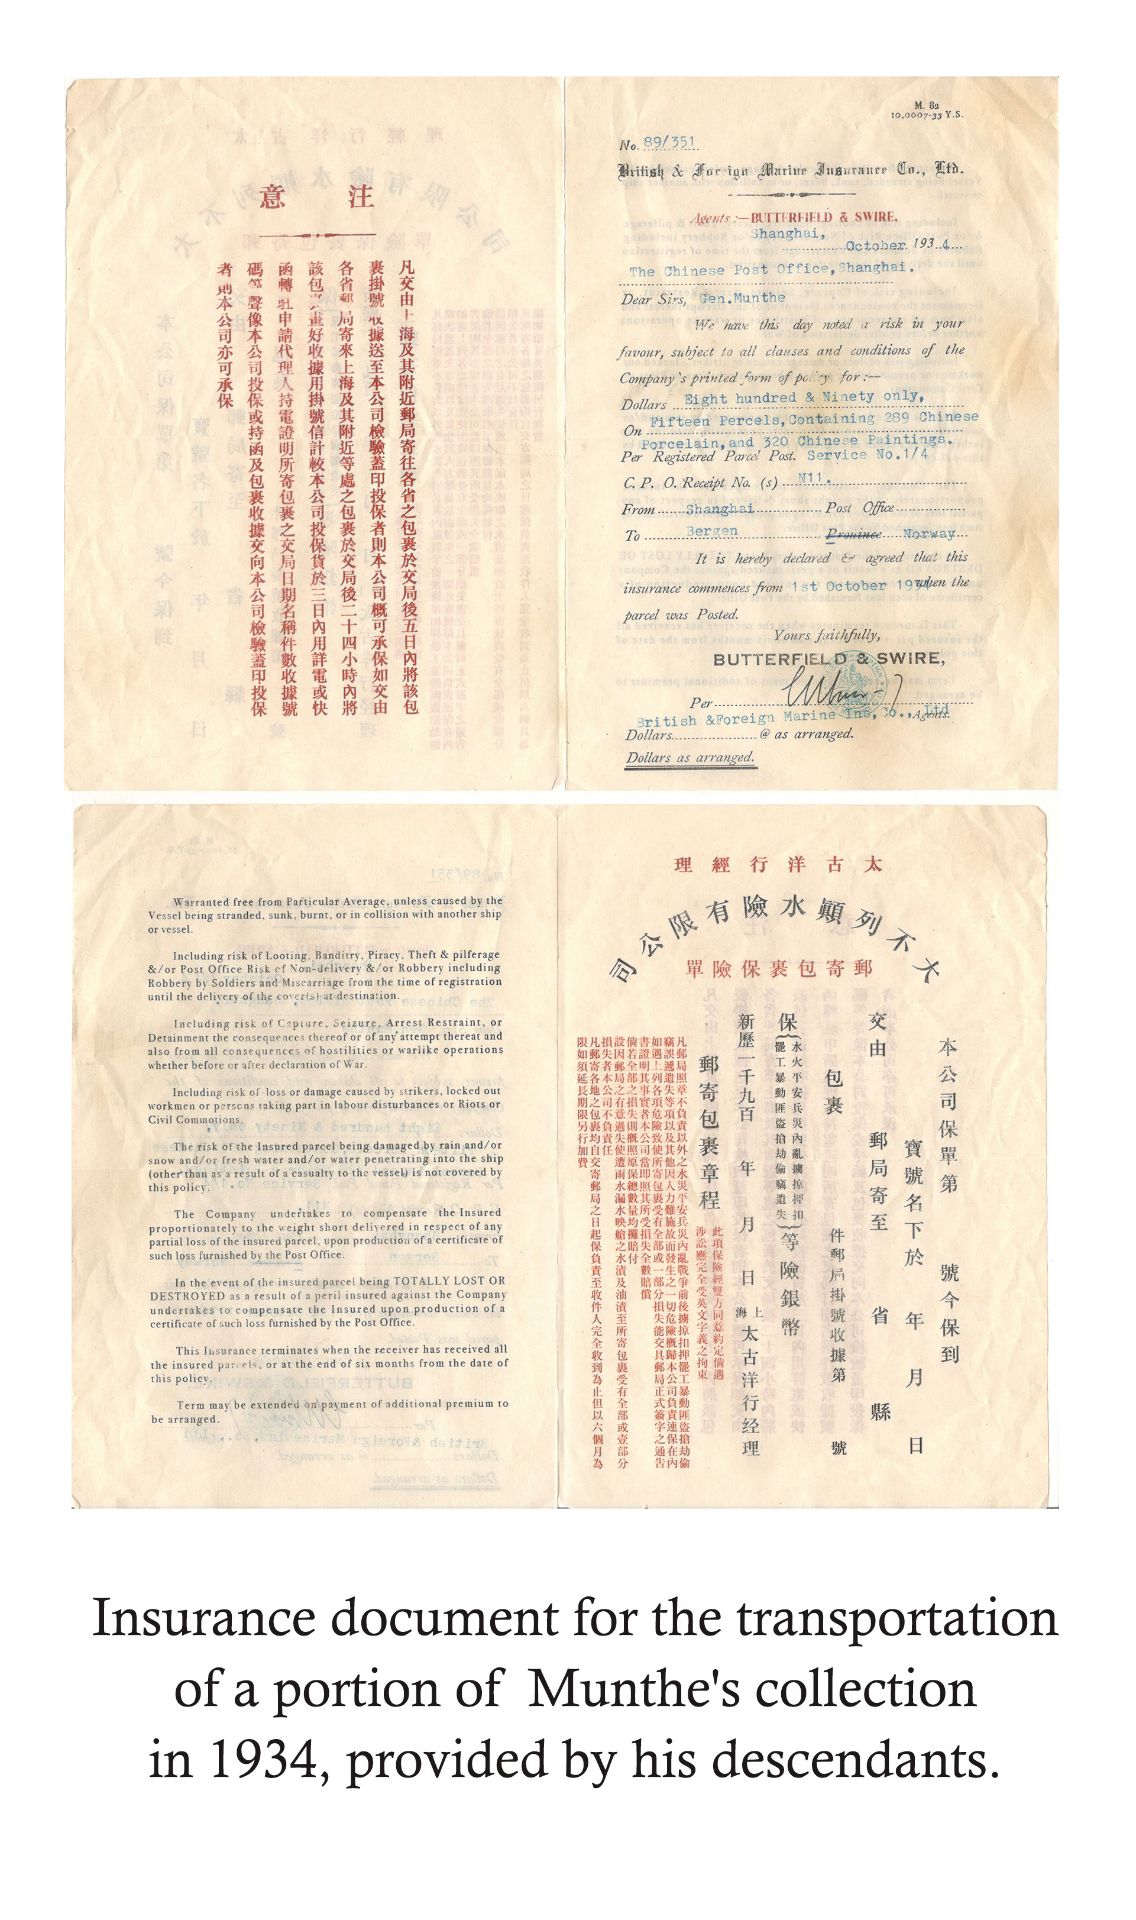 注 意
凡交由上海及其附近郵局寄往各省之包裹於交局後五日內將該包
裹掛號收據送至本公司檢驗蓋印投保者則本公司概可承保如交由
各省郵局寄來上海及其附近等處之包裹於交局後二十四小時內將
該包裹畫好收據用掛號信計較本公司投保貨於三日內用詳電或快
函轉駐申請代理人持電證明所寄包裹之交局日期名稱件數收據號
碼等聲像本公司投保或持函及包裹收據交向本公司檢驗蓋印投保
者則本公司亦可承保
M. 82
10,0007-33 Y.S.
No. 89/351
British & Foreign Marine Insurance Co., Ltd.
Agents :—BUTTERFIELD & SWIRE,
Shanghai,
October 1934
The Chinese Post Office, Shanghai.
Dear Sirs, Gen.Munthe
We have this day noted a risk in your
favour, subject to all clauses and conditions of the
Company's printed form of policy for :—
Dollars Eight hundred & Ninety only,
On Fifteen Percels, Containing 289 Chinese
Porcelain, and 320 Chinese Paintings.
Per Registered Parcel Post. Service No.1/4
C. P. O. Receipt No. (s) N11.
From Shanghai Post Office
To Bergen Province Norway
It is hereby declared & agreed that this
insurance commences from 1st October 1934 when the
parcel was Posted.
Yours faithfully,
BUTTERFIELD & SWIRE,
Per
British &Foreign Marine Ins, Co., Ltd
Agents.
Dollars @ as arranged.
Dollars as arranged.
Warranted free from Particular Average, unless caused by the
Vessel being stranded, sunk, burnt, or in collision with another ship
or vessel.
Including risk of Looting, Banditry, Piracy, Theft & pilferage
&/or Post Office Risk of Non-delivery &/or Robbery including
Robbery by Soldiers and Miscarriage from the time of registration
until the delivery of the cover(s) at destination.
Including risk of Capture, Seizure, Arrest Restraint, or
Detainment the consequences thereof or of any attempt thereat and
also from all consequences of hostilities or warlike operations
whether before or after declaration of War.
Including risk of loss or damage caused by strikers, locked out
workmen or persons taking part in labour disturbances or Riots or
Civil Commotions.
The risk of the Insured parcel being damaged by rain and/or
snow and/or fresh water and/or water penetrating into the ship
(other than as a result of a casualty to the vessel) is not covered by
this policy.
The Company undertakes to compensate the Insured
proportionately to the weight short delivered in respect of any
partial loss of the insured parcel, upon production of a certificate of
such loss furnished by the Post Office.
In the event of the insured parcel being TOTALLY LOST OR
DESTROYED as a result of a peril insured against the Company
undertakes to compensate the Insured upon production of a
certificate of such loss furnished by the Post Office.
This Insurance terminates when the receiver has received all
the insured parcels, or at the end of six months from the date of
this policy.
Term may be extended on payment of additional premium to
be arranged.
太古洋行經理
大不列顛水險有限公司
郵寄包裹保險單
本公司保單第 號今保到
寶號名下於 年 月 日
交由 郵局寄至 省 縣
包裹 件郵局掛號收據第 號
保 水火平安兵災內亂擄掠押扣
罷工暴動匪盜搶劫偷竊遺失 等險銀幣
新歷一千九百 年 月 日 上海 太古洋行经理
郵寄包裹章程 此項保險經雙方同意約定倘遇
涉訟應完全受英文字義之拘束
凡郵局照章不負責以外之水災平安兵災內亂戰爭前後擄掠扣押罷工暴動匪盜搶劫偷
竊誤遞遺失等項以及其他因人力難施故而發生之一切危險概歸本公司負責連保在內
如遇上列各項危險致使所寄包裹受有全部或一部分損失能交具郵局正式簽字之通告
書證明其事實者本公司當即照其所受損失全數賠償
倘若全部之損失則概照原保總數量均攤賠付
設因郵局之有意過失使遭雨水漏水映艙之水漬及油漬至所寄包裹受有全部或壹部分
損失者本公司不負責任
凡郵寄各地之包裹均自交寄郵局之日起保負責至收件人完全收到為止但以六個月為
限如須延長期限另行加費
Insurance document for the transportation
of a portion of Munthe's collection
in 1934, provided by his descendants.